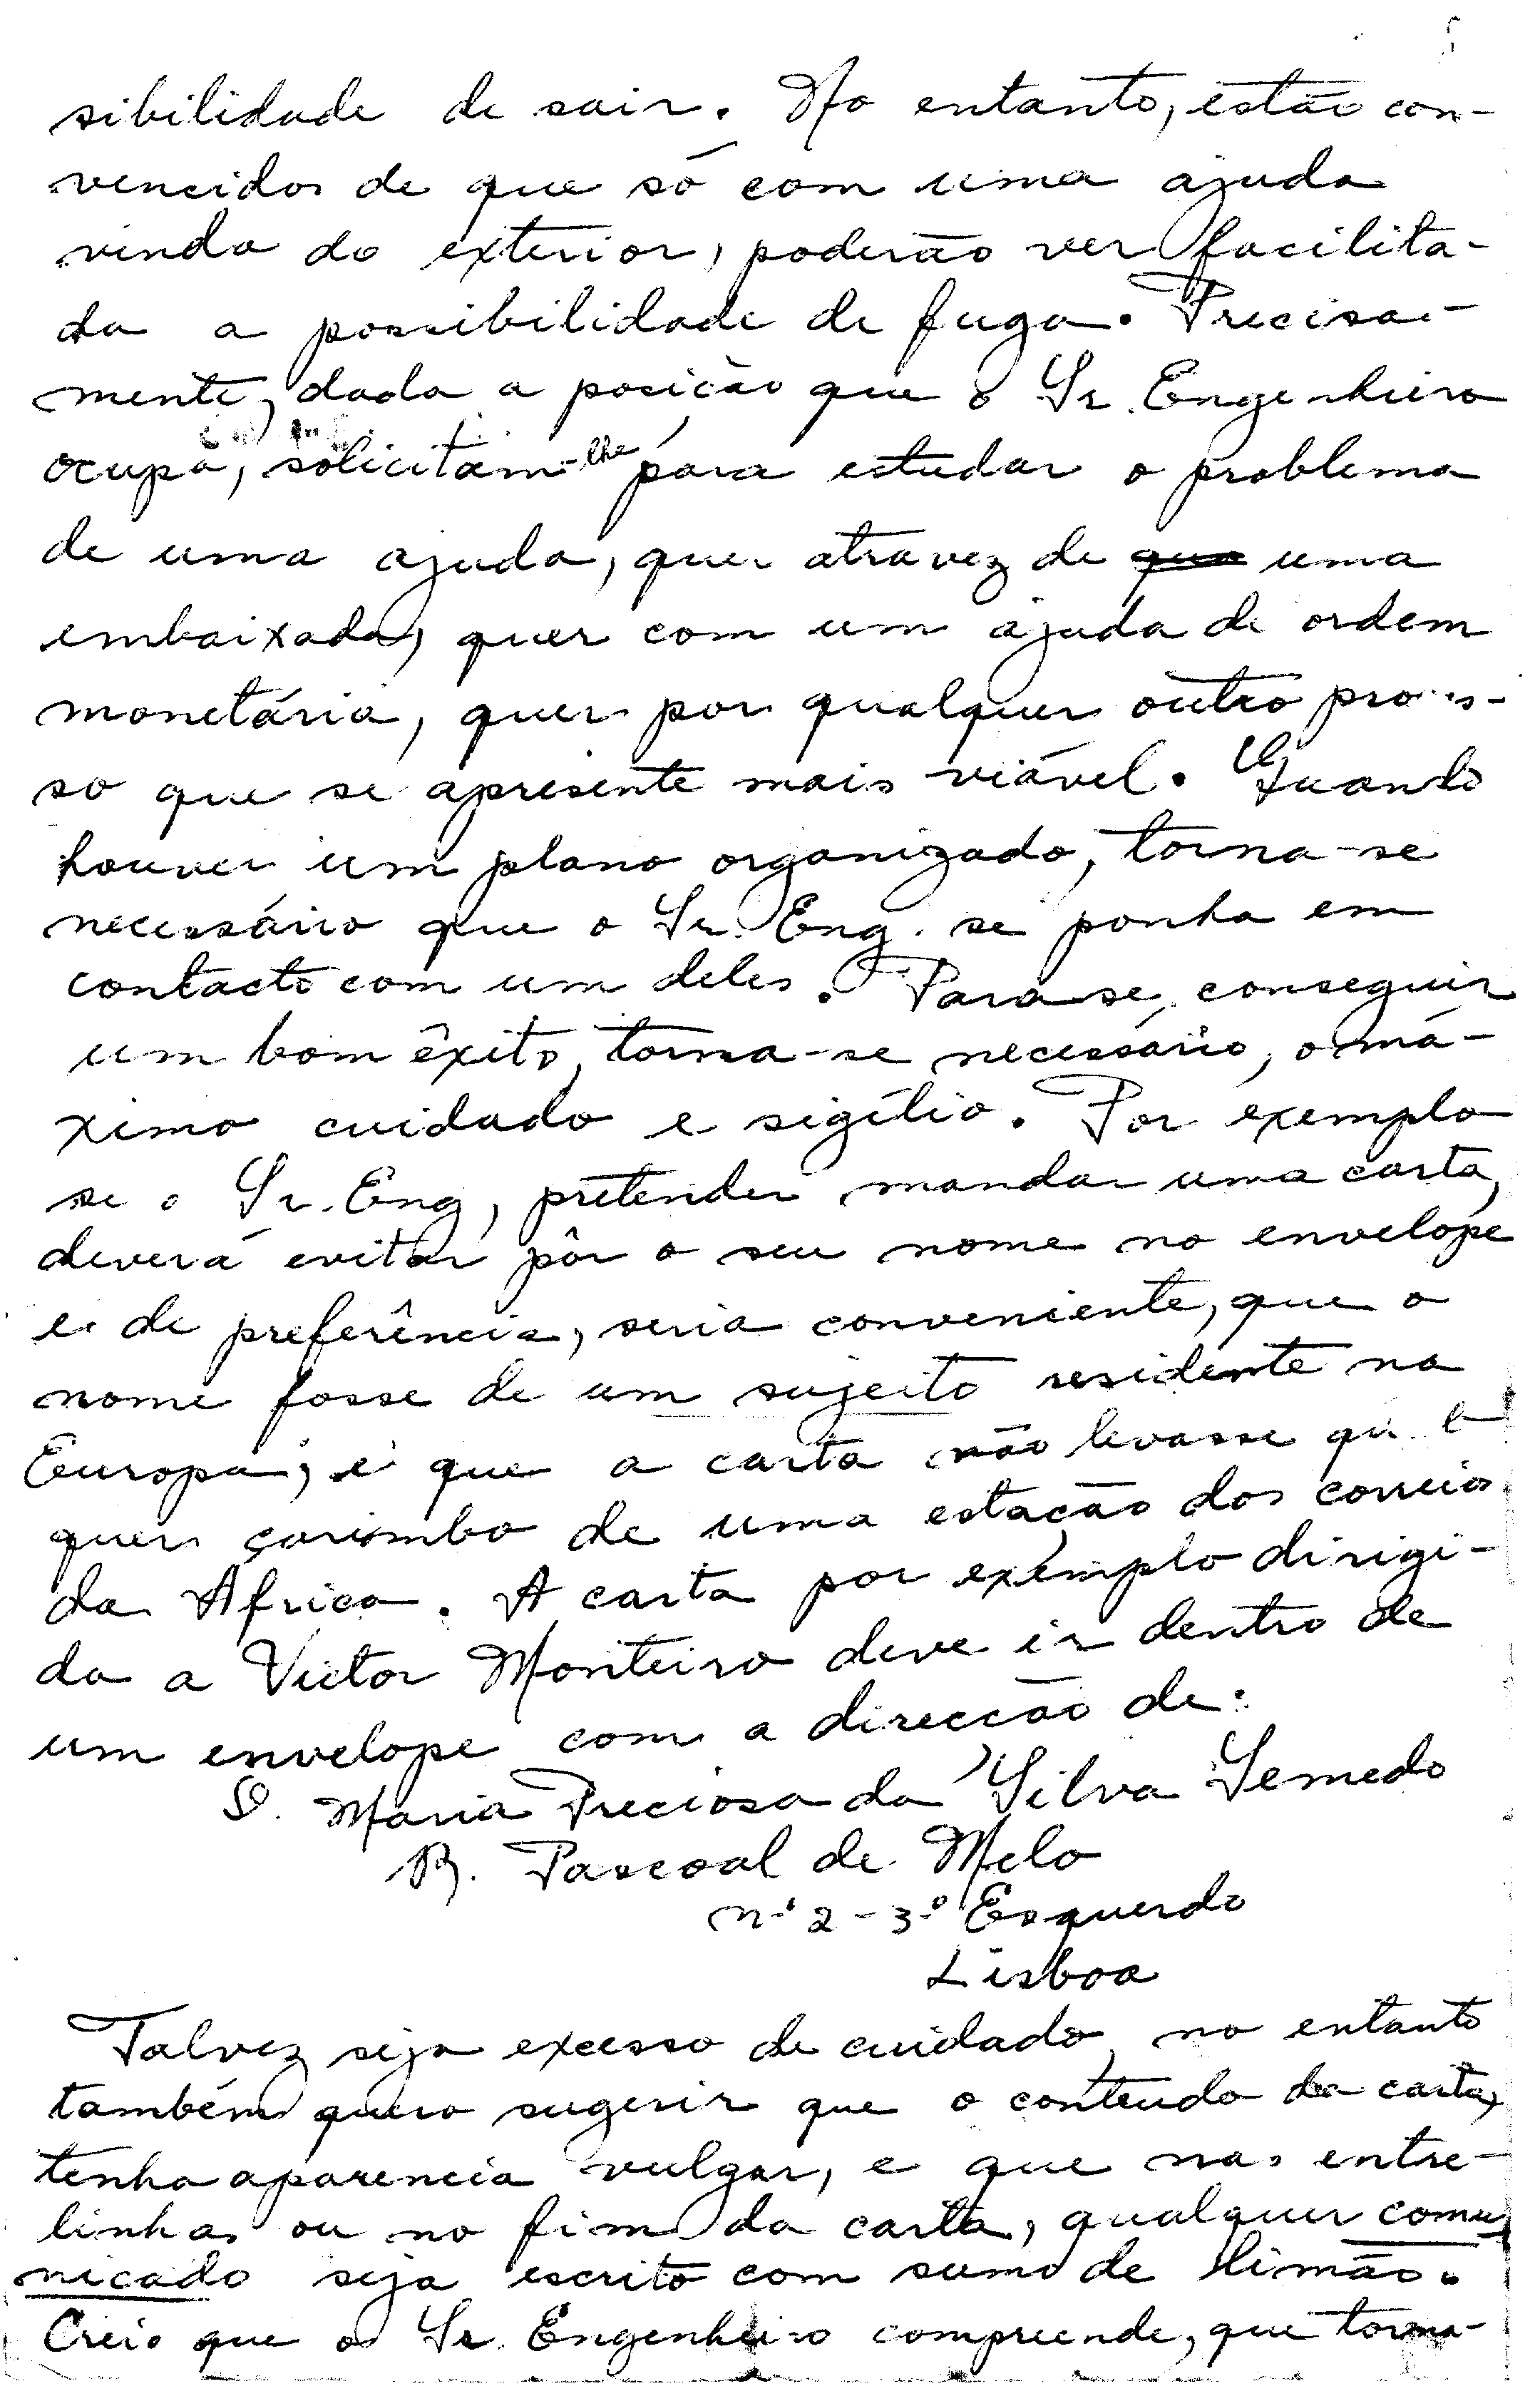 sibilidade de sair. No entanto, estão con-
vencidos de que só com uma ajuda
vinda do exterior, poderão ver facilita-
da a possibilidade de fuga. Precisa-
mente, dada a posição que o Sr. Engenheiro
ocupa, solicitam-lhe para estudar o problema
de uma ajuda, quer atravez de uma
embaixada, quer com um ajuda de ordem
monetária, quer por qualquer outro
so que se apresente mais viável. Quando
houver um plano organizado, torna-se
necessário que o Sr. Eng. se ponha em
contacto com um deles. Para se, conseguir
um bom êxito, torna-se necessário, o má-
ximo cuidado e sigílio. Por exemplo
se o Sr. Eng, pretender mandar uma carta,
deverá evitar pôr o seu nome no envelope
e de preferência, seria conveniente, que o
nome fosse de um sujeito residente na
Europa, e que a carta não levasse
quer carimbo de uma estação dos correios
da Africa. A carta por exemplo dirigi-
da a Victor Monteiro deve ir dentro de
um envelope com a direcção de:
D. Maria Preciosa da Silva Semedo
R. Pascoal de Melo
nº 2 - 3º Esquerdo
Lisboa
Talvez seja excesso de cuidado, no entanto
também quero sugerir que o conteudo da carta,
tenha aparencia vulgar, e que nas entre-
linhas ou no fim da carta, qualquer comu-
nicado seja escrito com sumo de limão.
Creio que o Sr. Engenheiro compreende, que torna-